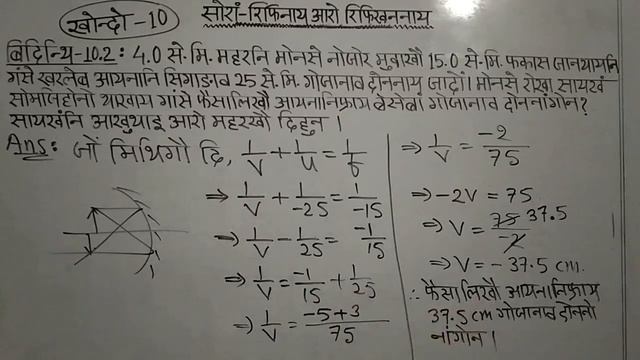 खोन्दो-10
सोरां-रिफिनाय आरो रिफिखननाय
बिदिन्थि-10.2: 4.0 से.मि. महरनि मोनसे नोजोर मुवाखौ 15.0 से.मि. फकास जानथायनि
गंसे खरलेब आयनानि सिगाङाव 25 से.मि. गोजानाव दोननाय जादों। मोनसे रोखा सायखं
सोमजिहोनो थाखाय गंसे फैसालिखौ आयनानिफ्राय बेसेबा गोजानाव दोननांगोन?
सायखंनि आखुथाइ आरो महरखौ दिहुन।
Ans: जों मिथिगौ दि, 1/V + 1/u = 1/f
⇒ 1/V + 1/-25 = 1/-15
⇒ 1/V - 1/25 = -1/15
⇒ 1/V = -1/15 + 1/25
⇒ 1/V = -5+3/75
⇒ 1/V = -2/75
⇒ -2V = 75
⇒ V = 75/-2 37.5
⇒ V = -37.5 cm.
∴ फैसालिखौ आयनानिफ्राय
37.5 cm गोजानाव दोननो
नांगोन।